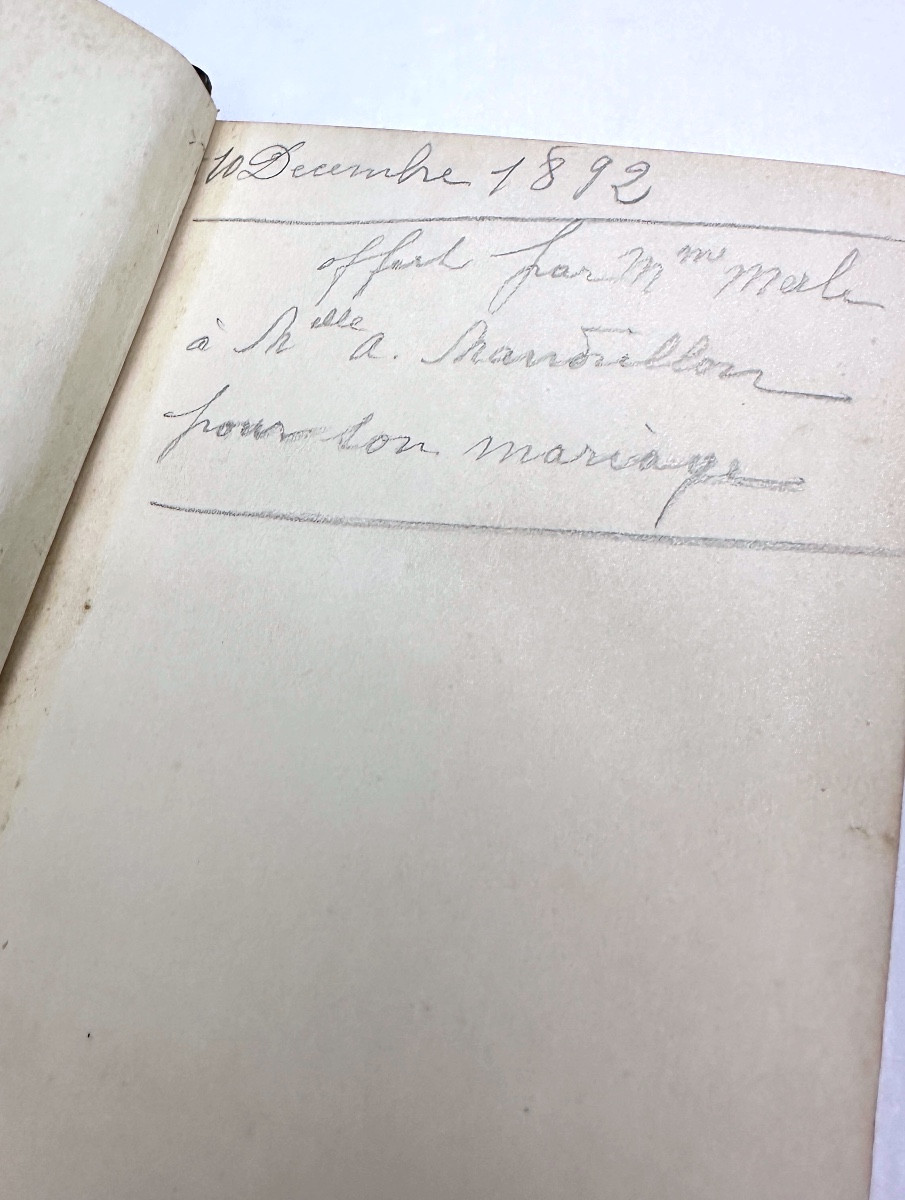 10 Decembre 1892
offert par Mme Merle
à Melle A. Mandrillon
pour son mariage